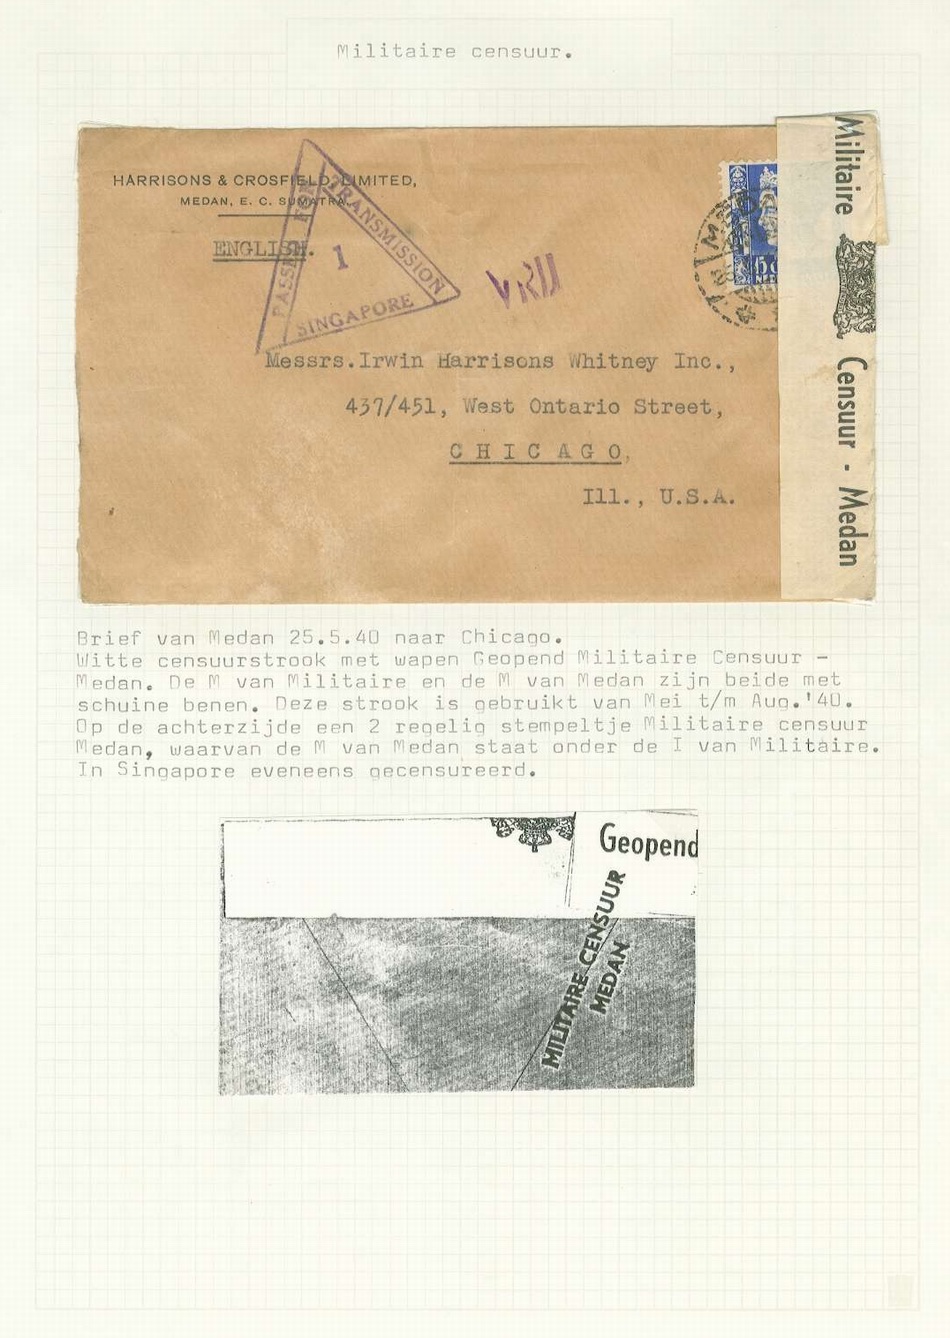 Militaire censuur.
HARRISONS & CROSFIELD, LIMITED,
MEDAN, E. C. SUMATRA.
ENGLISH.
PASSED FOR
TRANSMISSION
1
SINGAPORE
VRIJ
Messrs.Irwin Harrisons Whitney Inc.,
437/451, West Ontario Street,
C H I C A G O,
Ill., U.S.A.
Militaire Censuur - Medan
Brief van Medan 25.5.40 naar Chicago.
Witte censuurstrook met wapen Geopend Militaire Censuur -
Medan. De M van Militaire en de M van Medan zijn beide met
schuine benen. Deze strook is gebruikt van Mei t/m Aug.'40.
Op de achterzijde een 2 regelig stempeltje Militaire censuur
Medan, waarvan de M van Medan staat onder de I van Militaire.
In Singapore eveneens gecensureerd.
Geopend
MILITAIRE CENSUUR
MEDAN